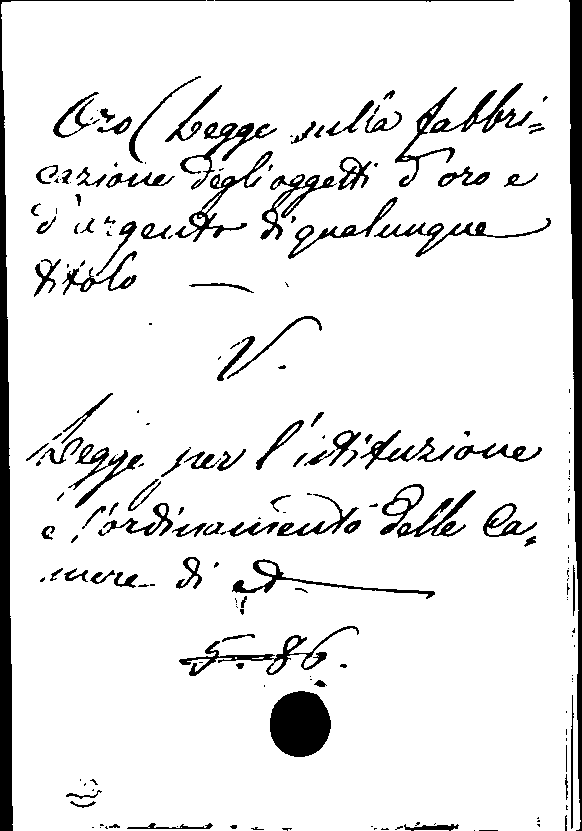 Oro (Legge sulla fabbri=
cazione degli oggetti d'oro e
d'argento di qualunque
titolo —
V.
Legge per l'istituzione
e l'ordinamento delle Ca=
mere di
5. 86.